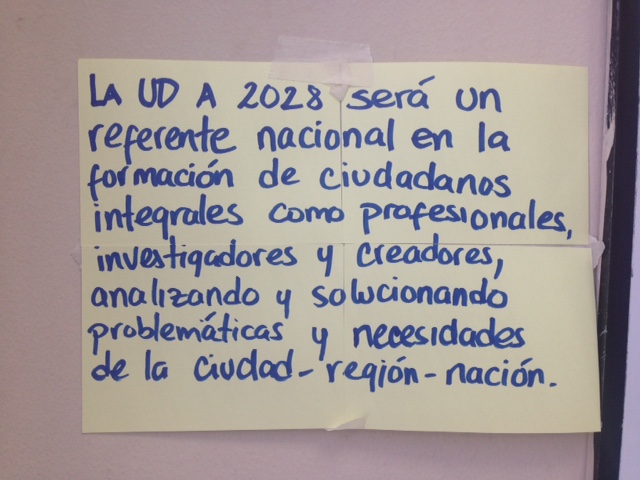 LA UD A 2028 será un
referente nacional en la
formación de ciudadanos
integrales como profesionales,
investigadores y creadores,
analizando y solucionando
problemáticas y necesidades
de la ciudad-región-nación.